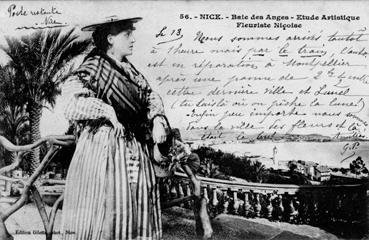 Poste restante
Nice.
56. - NICE. - Baie des Anges - Etude Artistique
Fleuriste Niçoise
Le 13, Nous sommes arrivés tantôt
à l'heure mais par le train, l'auto
est en réparation à Montpellier
après une panne de 2 entre
cette dernière ville et Lunel
(tu sais là où on pêche la lune)
Enfin peu importe nous
sous la ville des fleurs et là
c'est le
G.P.
Edition Giletta, phot., Nice